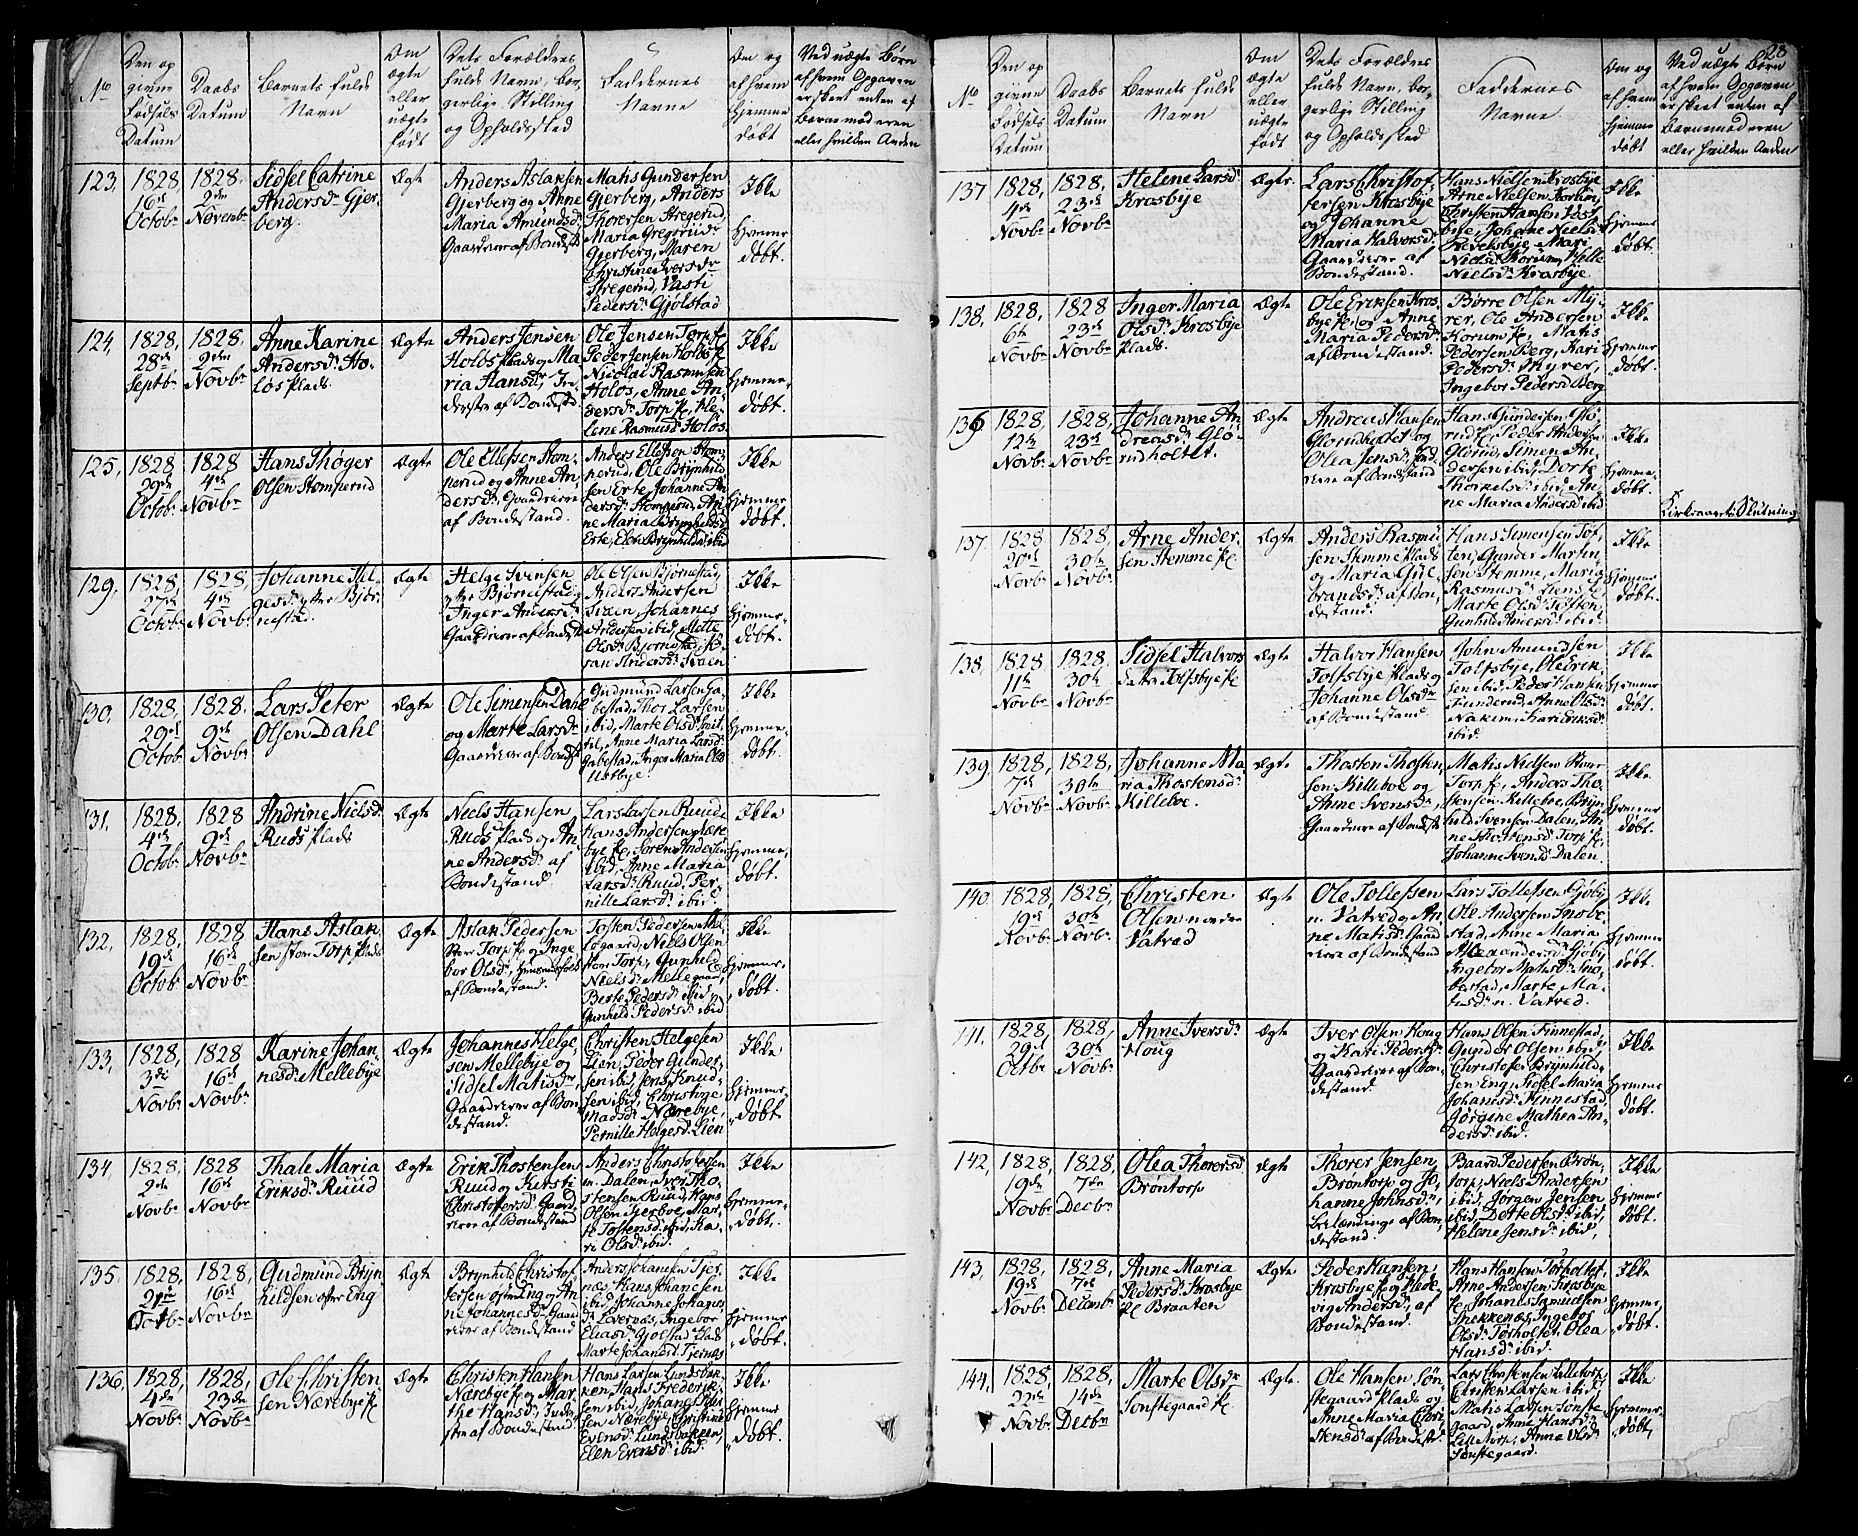 No
Den op
givne
Fødsels
Datum
Daabs
Datum
Barnets fulde
Navn
Om
ægte
eller
uægte
født
Dets Forældres
fulde Navn, bor-
gerlige Stilling
og Opholdssted
Faddernes
Navne
Om og
af hvem
hjemme
døbt
Ved uægte Børn
af hvem Opgaven
er skeet enten af
Barnemoderen
eller hvilken Anden
123,
1828,
16de
Octobr
1828,
2den
Novembr
Sidsel Catrine
Andersdr Gjer-
berg.
Ægte
Anders Aslaksen
Gjerberg og Anne
Maria Amundsdr
Gaardmand af Bondest
Matis Gundersen
Gjerberg, Anders
Thorersen Stregerud,
Maria Gregersdr
Gjerberg, Maren
Christine Iversdr
Stregerud, Vasti
Pedersdr Gjølstad
Ikke
hjemme
døbt.
124,
1828,
28de
Septbr
1828,
2den
Novbr
Anne Karine
Andersdr Ho-
løs plads.
Ægte
Anders Jensen
Holøs plads og Ma-
ria Hansdr, In-
derster af Bondestd
Ole Jensen Torp
Pedersen Holøs
Nicolai Rasmusen
Holøs, Anne An-
dersdr Torp, He-
lene Rasmusdr Holøs
Ikke
hjemme-
døbt.
125,
1828
29de
Octobr
1828
4de
Novbr
Hans Thøger
Olsen Stomperud
Ægte
Ole Ellefsen Stom-
perud og Anne An-
dersdr, Gaardmand
af Bondestand.
Anders Ellefsen Stom-
perud, Ole Brynild-
sen Erte, Johanne An-
dersdr Stomperud, An-
ne Maria Brynildsdr
Erte, Elen Brynildsdr ibid
Ikke
hjemme-
døbt.
129,
1828,
27de
Octobr
1828,
4de
Novbr
Johanne Hel-
gesdr ytre Bjør-
nestad.
Ægte
Helge Svensen
ytre Bjørnestad og
Inger Andersdr
Gaardmand af Bondestd
Ole Olsen Bjørnestad,
Anders Andersen
Sveen, Johannes
Andersen ibid, Mette
Olsdr Bjørnestad,
Andersdr Sveen
Ikke
hjemme-
døbt.
130,
1828,
29de
Octobr
1828,
9de
Novbr
Lars Peter
Olsen Dahl
Ægte
Ole Simensen Dahl
og Marte Larsdr
Gaardmand af Bondest
Gudmund Larsen Ga-
bestad, Thor Larsen
ibid, Marte Olsdr
Anne Maria Larsdr
Gabestad, Inger Maria Olsd
Ikke
hjemme-
døbt.
131,
1828,
4de
Octobr
1828
9de
Novbr
Andrine Nielsdr
Ruds plads
Ægte
Niels Hansen
Ruds plads og An-
ne Andersdr af
Bondestand.
Lars Larsen Ruud,
Hans Andersen Nære-
bye, Søren Andersen
ibid, Anne Maria
Larsdr Ruud, Per-
nille Larsdr ibid.
Ikke
hjemme-
døbt.
132,
1828,
19de
Octobr
1828
16de
Novbr
Hans Aslak-
sen stom Torp plads
Ægte
Aslak Pedersen
Torp og Inge-
bor Olsdr,
af Bondestand.
Tosten Pedersen Mel-
legaard, Niels Olsen
Torp, Gunhild
Nielsdr Mellegaard,
Berte Pedersdr ibid,
Gunhild Pedersdr ibid
Ikke
hjemme-
døbt.
133,
1828,
3de
Novbr
1828
16de
Novbr
Karine Johan-
nesdr Mellebye
Ægte
Johannes Helge-
sen Mellebye og
Sidsel Matisdr
Gaardmand af Bon-
destand.
Christen Helgesen
Lien, Peder Gunder-
sen ibid, Jens Knud-
sen ibid, Christine
Madsdr Nærebye,
Pernille Helgesdr Lien
Ikke
hjemme-
døbt.
134,
1828,
2den
Novbr
1828
16de
Novbr
Thale Maria
Eriksdr Ruud
Ægte
Erik Thostensen
Ruud og Kirsti
Christofersdr Gaard-
mand af Bondestand
Anders Christofersen
n. Dalen, Iver Tho-
stensen Ruud, Hans
Olsen Gjerboe, Mar-
te Tostensdr ibid, Ka-
ri Olsdr ibid.
Ikke
hjemme-
døbt.
135,
1828,
21de
Octbr
1828,
16de
Novbr
Gudmund Bryn-
hildsen østre Eng
Ægte
Brynhild Christof-
fersen østre Eng og An-
ne Johannesdr Gaard-
mand af Bondestand
Anders Johansen Tjer-
næs, Hans Johanesen
ibid, Johanne Johanes-
dr Levernæs, Ingebor
Eliasdr Gjølstad plads
Marte Johanesdr Tjernæs
Ikke
hjemme-
døbt.
136,
1828,
4de
Novbr
1828,
23de
Novbr
Ole Christen-
sen Nærebye
Ægte
Christen Hansen
Nærebye og Mar-
the Hansdr, Inder-
ster af Bondestand
Hans Larsen Lundsbak-
ken, Hans Frederik-
sen ibid, Johanes
Nærebye, Christine
Evensdr Lundsbakken,
Elen Evensdr ibid.
Ikke
hjemme-
døbt.
28
No
Den op
givne
Fødsels
Datum
Daabs
Datum
Barnets fulde
Navn
Om
ægte
eller
uægte
født
Dets Forældres
fulde Navn, bor-
gerlige Stilling
og Opholdssted
Faddernes
Navne
Om og
af hvem
hjemme
døbt
Ved uægte Børn
af hvem Opgaven
er skeet enten af
Barnemoderen
eller hvilken Anden
137
1828,
4de
Novbr
1828,
23de
Novbr
Helene Larsdr
Krosbye
Ægte.
Lars Christof-
fersen Krosbye
og Johanne
Maria Halvorsdr
Gaardmand af
Bondestand.
Hans Nielsen Krosbye
Arne Nielsen Korum,
Christen Hansen
Johane Nielsdr
Mari
Nielsdr Korum, Helle
Nielsdr Krosbye.
Ikke
hjemme
døbt.
138,
1828,
6te
Novbr
1828
23de
Novbr
Inger Maria
Olsdr Krosbye
plads.
Ægte
Ole Eriksen Kros-
bye og Anne
Maria Pedersdr
af Bondestand.
Børre Olsen My-
rer, Ole Andersen
Korum, Matis
Pedersen Berg, Kari
Pedersdr Myrer,
Ingebor Pedersdr Berg
Ikke
hjemme-
døbt.
136
1828
12te
Novbr
1828,
23de
Novbr
Johanne An-
dreasdr Glo-
rudholtet.
Ægte
Andreas Hansen
Glorudholtet og
Olea Jensdr, Ind-
af Bondestand
Hans Gundersen Glo-
rud, Peder Andersen
Glorud, Simen An-
dersen ibid, Dorte
Thorkelsdr ibid, An-
ne Maria Andersdr ibid
Ikke
hjemme-
døbt.
Kirkeaarets Slutning
137
1828
20de
Novbr
1828,
30te
Novbr
Arne Ander-
sen Stemme
Ægte
Anders Rasmu-
sen Stemme plads
og Maria Gul-
brandsdr af Bon-
destand.
Hans Simensen Tof-
ten, Gunder Martin-
sen Stemme, Maria
Rasmusdr Liens
Marte Olsdr Toften,
Gunhild Andersdr ibid.
Ikke
hjemme-
døbt.
138,
1828
11te
Novbr
1828,
30te
Novbr
Sidsel Halvors-
datr Tolfsbye
Ægte
Halvor Hansen
Tolfsbye plads og
Johanne Olsdr
af Bondestand.
John Amundsen
Tolfsbye, Ole Erik-
sen ibid, Peder Hansen
Funderud, Anne Olsdr
Nakim, Kari Eriksdr
ibid.
Ikke
hjemme-
døbt.
139
1828,
7de
Novbr
1828,
30te
Novbr
Johanne Ma-
ria Thostensdr
Killeboe.
Ægte
Thosten Thosten-
sen Killeboe og
Anne Svensdr,
Gaardmand af Bondestd
Matis Nielsen
Torp, Anders Tho-
stensen Killeboe, Bryn-
hild Svensen Dalen, An-
ne Thostensdr Torp,
Johanne Svensdr Dalen.
Ikke
hjemme
døbt.
140,
1828,
19de
Novbr
1828,
30te
Novbr
Christen
Olsen nordre
Vatved
Ægte
Ole Tollefsen
n. Vatved og An-
ne Matisdr Gaard-
mand af Bondestand
Lars Tollefsen Gjøby,
Ole Andersen Snobe-
stad, Anne Maria
Alexandersdr Gjøby
Ingebor Matisdr Sno-
bestad, Marte Ma-
tisdr n. Vatved.
Ikke
hjemme
døbt.
141,
1828
29de
Octbr
1828,
30te
Novbr
Anne Iversdr
Houg
Ægte
Iver Olsen Houg
og Kari Pedersdr
Gaardmand af Bon-
destand.
Hans Olsen Finnestad,
Gunder Olsen ibid,
Christofer Brynild-
sen Eng, Sidsel Maria
Johanesdr Finnestad,
Jørgine Mathea An-
dersdr ibid.
Ikke
hjemme-
døbt.
142,
1828,
19de
Novbr
1828,
7de
Decbr
Olea Thorersdr
Brøntorp
Ægte
Thorer Jensen
Brøntorp og Jo-
hanne Johnsdr,
af Bon-
destand.
Baard Pedersen Brøn-
torp, Niels Andersen
ibid, Jørgen Jensen
ibid, Dorte Olsdr ibid,
Helene Jensdr ibid,
Ikke
hjemme
døbt.
143,
1828,
19de
Novbr
1828,
7de
Decembr
Anne Maria
Pedersdr Krosbye
Braaten
Ægte
Peder Hansen
Krosbye og Hede-
vig Andersdr, af
Bondestand.
Hans Hansen Torholtet,
Arne Andersen Krosbye
Johanes Samuelsen
Snekkenes, Ingebor
Olsdr Torholtet, Olea
Hansdr ibid.
Ikke
hjemme-
døbt.
144,
1828
22de
Novbr
1828,
14de
Decbr
Marte Olsdr
Sonstegaard
Ægte.
Ole Hansen Søn-
stegaard plads og
Anne Maria Chri-
stensdr af Bondestd
Lars Christensen Lilletorp,
Christen Larsen ibid,
Matis Larsen Sonste-
gaard, Anne Hansdr
Lille Torp, Anna Olsdr
Sonstegaard.
Ikke
hjemme-
døbt,